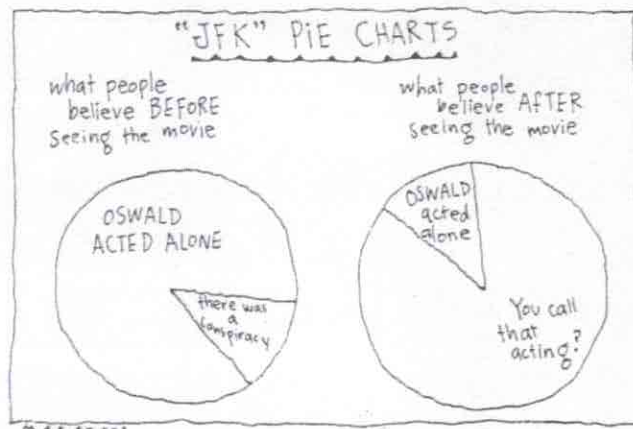 "JFK" PiE CHARTS
what people
believe BEFORE
seeing the movie
OSWALD
ACTED ALONE
there was
a
conspiracy
what people
believe AFTER
seeing the movie
OSWALD
acted
alone
You call
that
acting?